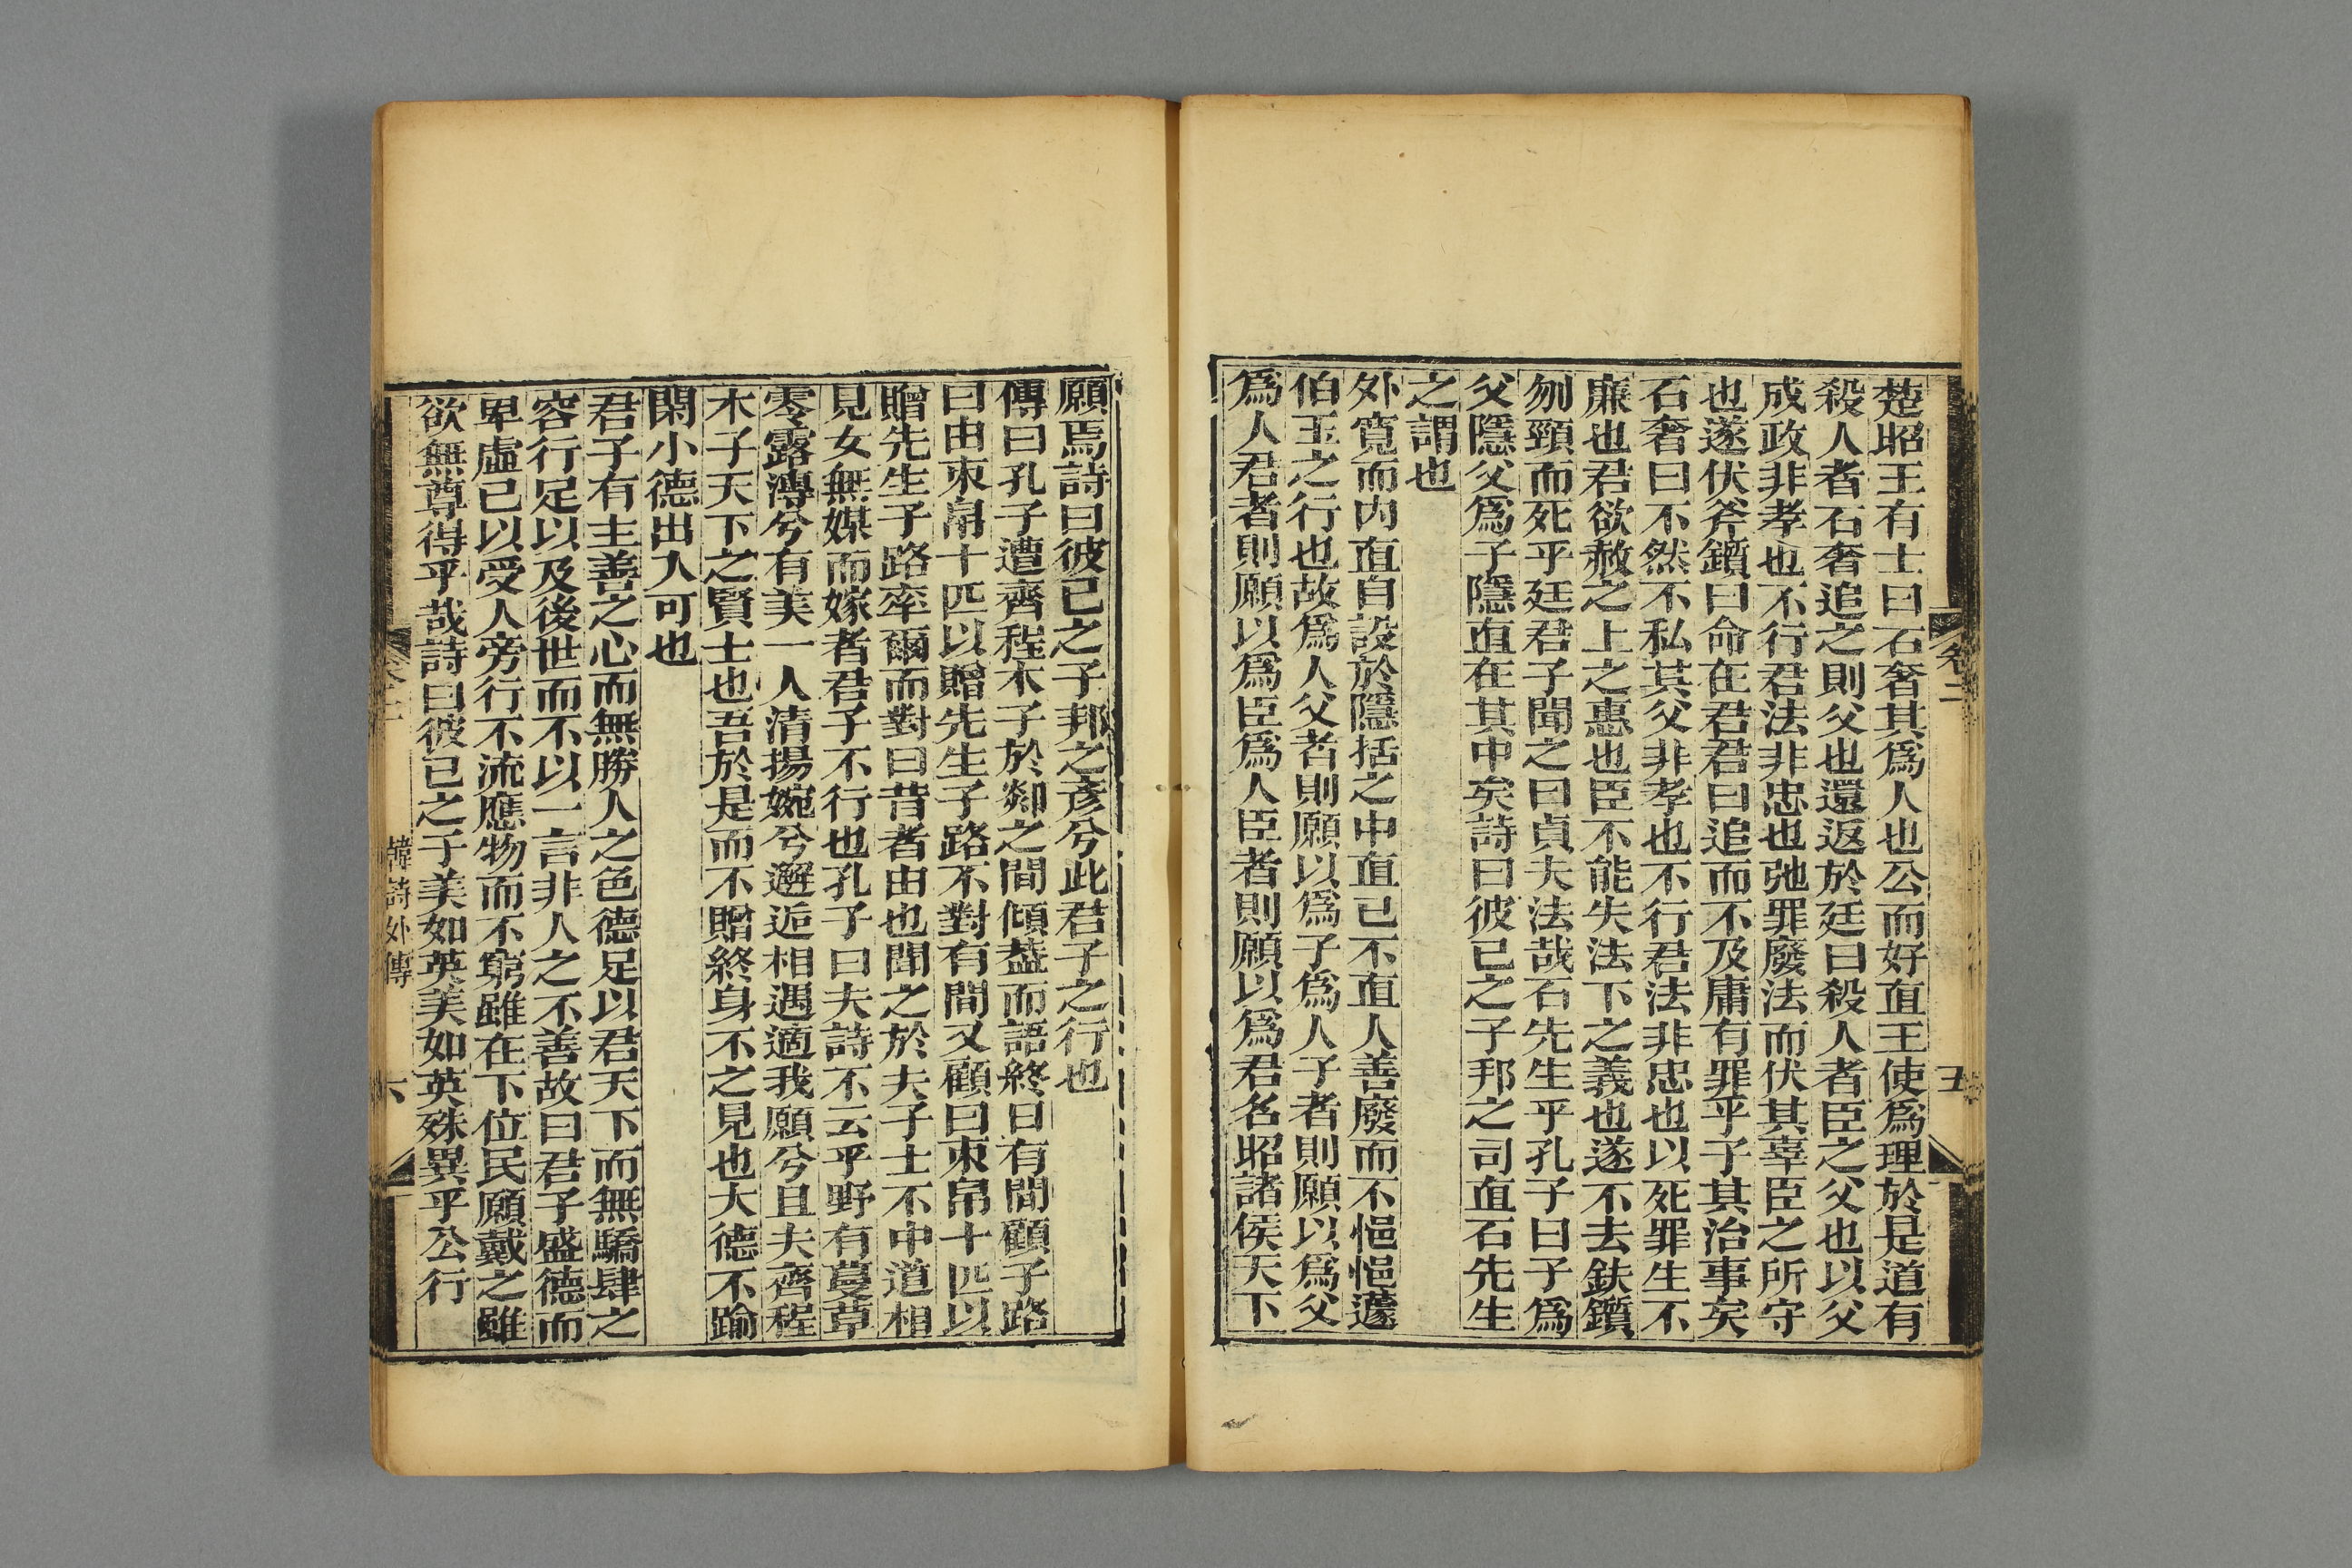 楚昭王有士曰石奢其爲人也公而好直王使爲理於是道有
殺人者石奢追之則父也還返於廷曰殺人者臣之父也以父
成政非孝也不行君法非忠也弛罪廢法而伏其辜臣之所守
也遂伏斧鑕曰命在君君曰追而不及庸有罪乎子其治事矣
石奢曰不然不私其父非孝也不行君法非忠也以死罪生不
廉也君欲赦之上之惠也臣不能失法下之義也遂不去鈇鑕
刎頸而死乎廷君子聞之曰貞夫法哉石先生乎孔子曰子爲
父隱父爲子隱直在其中矣詩曰彼已之子邦之司直石先生
之謂也
外寛而内直自設於隱括之中直已不直人善廢而不悒悒蘧
伯玉之行也故爲人父者則願以爲子爲人子者則願以爲父
爲人君者則願以爲臣爲人臣者則願以爲君名昭諸侯天下
卷二
五
願焉詩曰彼已之子邦之彦兮此君子之行也
傳曰孔子遭齊程木子於郯之間傾葢而語終日有間顧子路
曰由束帛十匹以贈先生子路不對有間又顧曰束帛十匹以
贈先生子路率爾而對曰昔者由也聞之於夫子士不中道相
見女無媒而嫁者君子不行也孔子曰夫詩不云乎野有蔓草
零露漙兮有美一人清揚婉兮邂逅相遇適我願兮且夫齊程
木子天下之賢士也吾於是而不贈終身不之見也大德不踰
閑小德出入可也
君子有主善之心而無勝人之色德足以君天下而無驕肆之
容行足以及後世而不以一言非人之不善故曰君子盛德而
卑虛已以受人旁行不流應物而不窮雖在下位民願戴之雖
欲無尊得乎哉詩曰彼已之子美如英美如英殊異乎公行
韓詩外傳
六